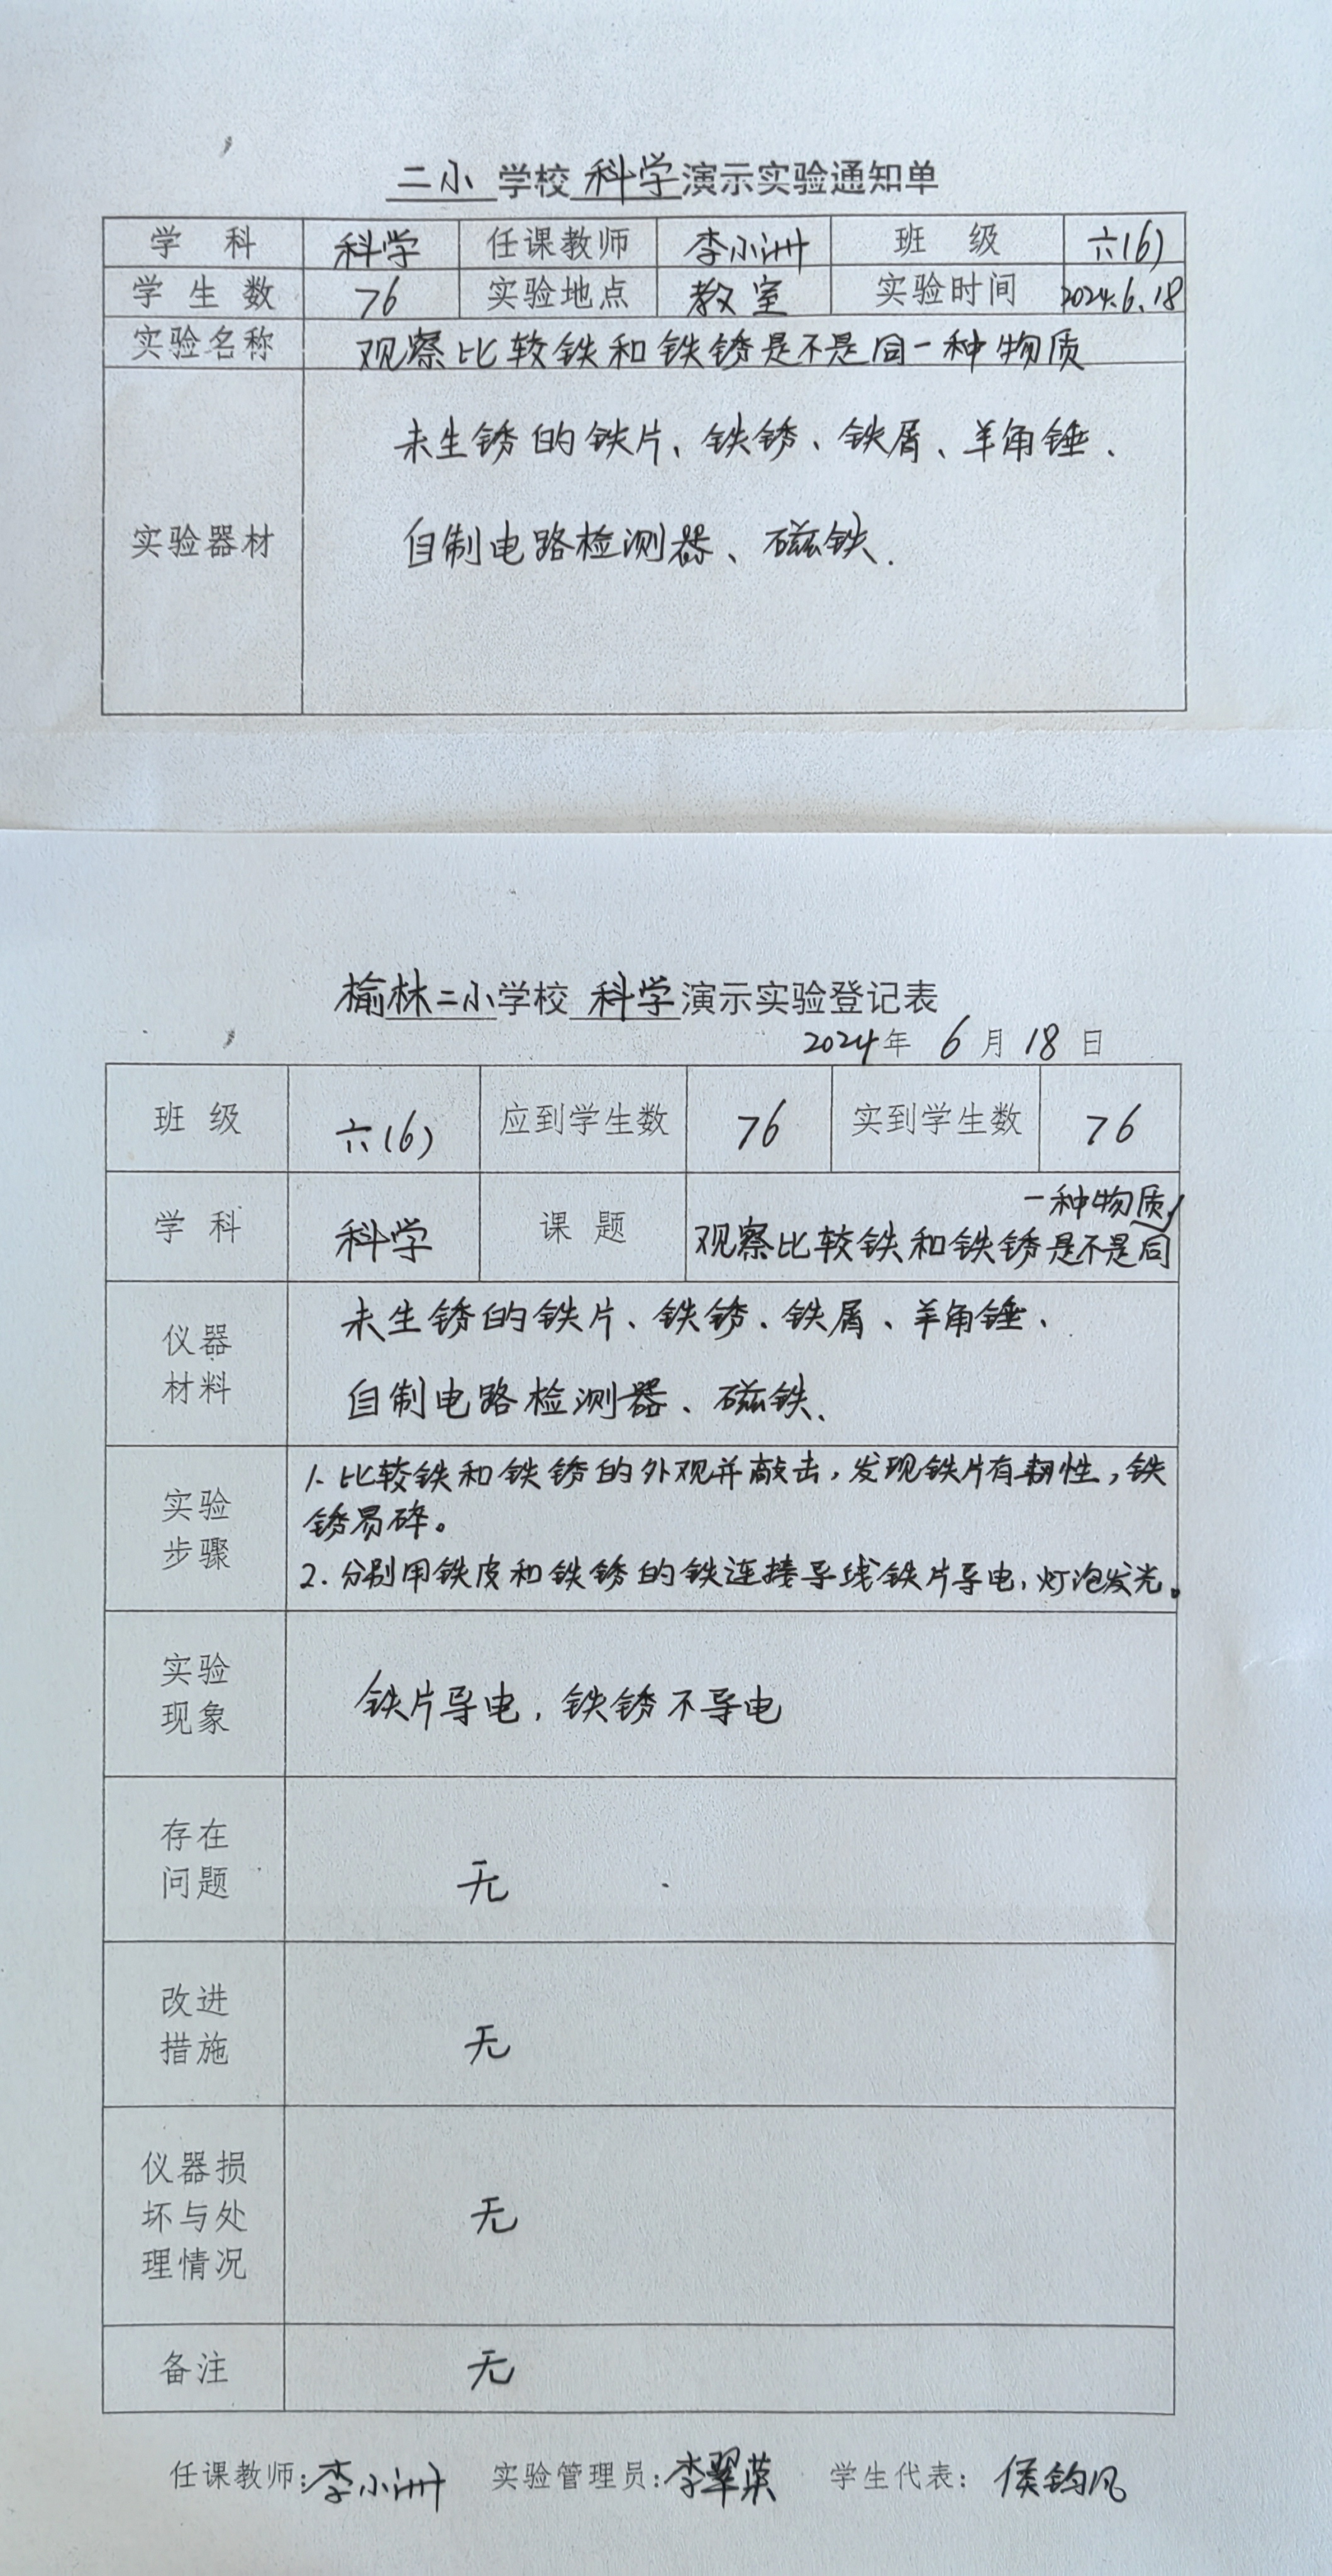 二小 学校 科学 演示实验通知单
学 科 科学 任课教师 李小洲 班 级 六(6)
学 生 数 76 实验地点 教室 实验时间 2024.6.18
实验名称 观察比较铁和铁锈是不是同一种物质
未生锈的铁片、铁锈、铁屑、羊角锤、
实验器材 自制电路检测器、磁铁.
榆林二小学校 科学 演示实验登记表
2024年 6 月 18 日
班 级 六(6) 应到学生数 76 实到学生数 76
学 科 科学 课 题 观察比较铁和铁锈是不是同
一种物质
仪器
材料
未生锈的铁片、铁锈、铁屑、羊角锤、
自制电路检测器、磁铁、
实验
步骤
1. 比较铁和铁锈的外观并敲击,发现铁片有韧性,铁
锈易碎。
2. 分别用铁皮和铁锈的铁连接导线铁片导电,灯泡发光。
实验
现象
铁片导电,铁锈不导电
存在
问题
无
改进
措施
无
仪器损
坏与处
理情况
无
备注 无
任课教师:李小洲 实验管理员:李翠英 学生代表:侯钧凡